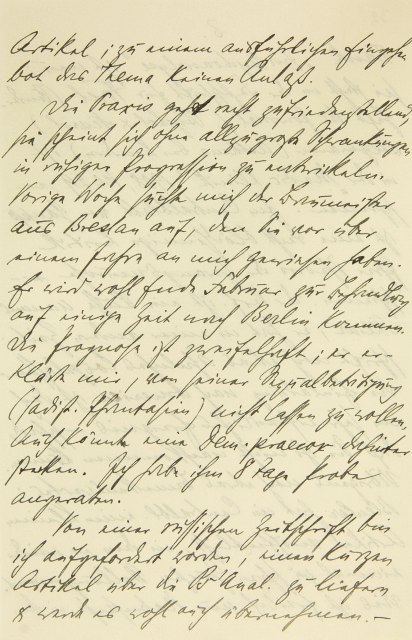 Artikel; zu einem ausführlichen Eingehen
bot das Thema keinen Anlaß.
Die Praxis geht recht zufriedenstellend,
sie scheint sich ohne allzugroße Schwankungen
in ruhiger Progression zu entwickeln.
Vorige Woche suchte mich der Baumeister
aus Breslau auf, den Sie vor über
einem Jahre an mich gewiesen haben.
Er wird wohl Ende Februar zur Behandlung
auf einige Zeit nach Berlin kommen.
Die Prognose ist zweifelhaft; er er-
klärte mir von seiner Sexualbetätigung
(sadist. Phantasien) nicht lassen zu wollen.
Auch könnte eine Dem. praecox dahinter
stecken. Ich habe ihm 8 Tage Probe
angeraten.
Von einer russischen Zeitschrift bin
ich aufgefordert worden, einen kurzen
Artikel über die ΨAnal. zu liefern
& werde es wohl auch übernehmen. —